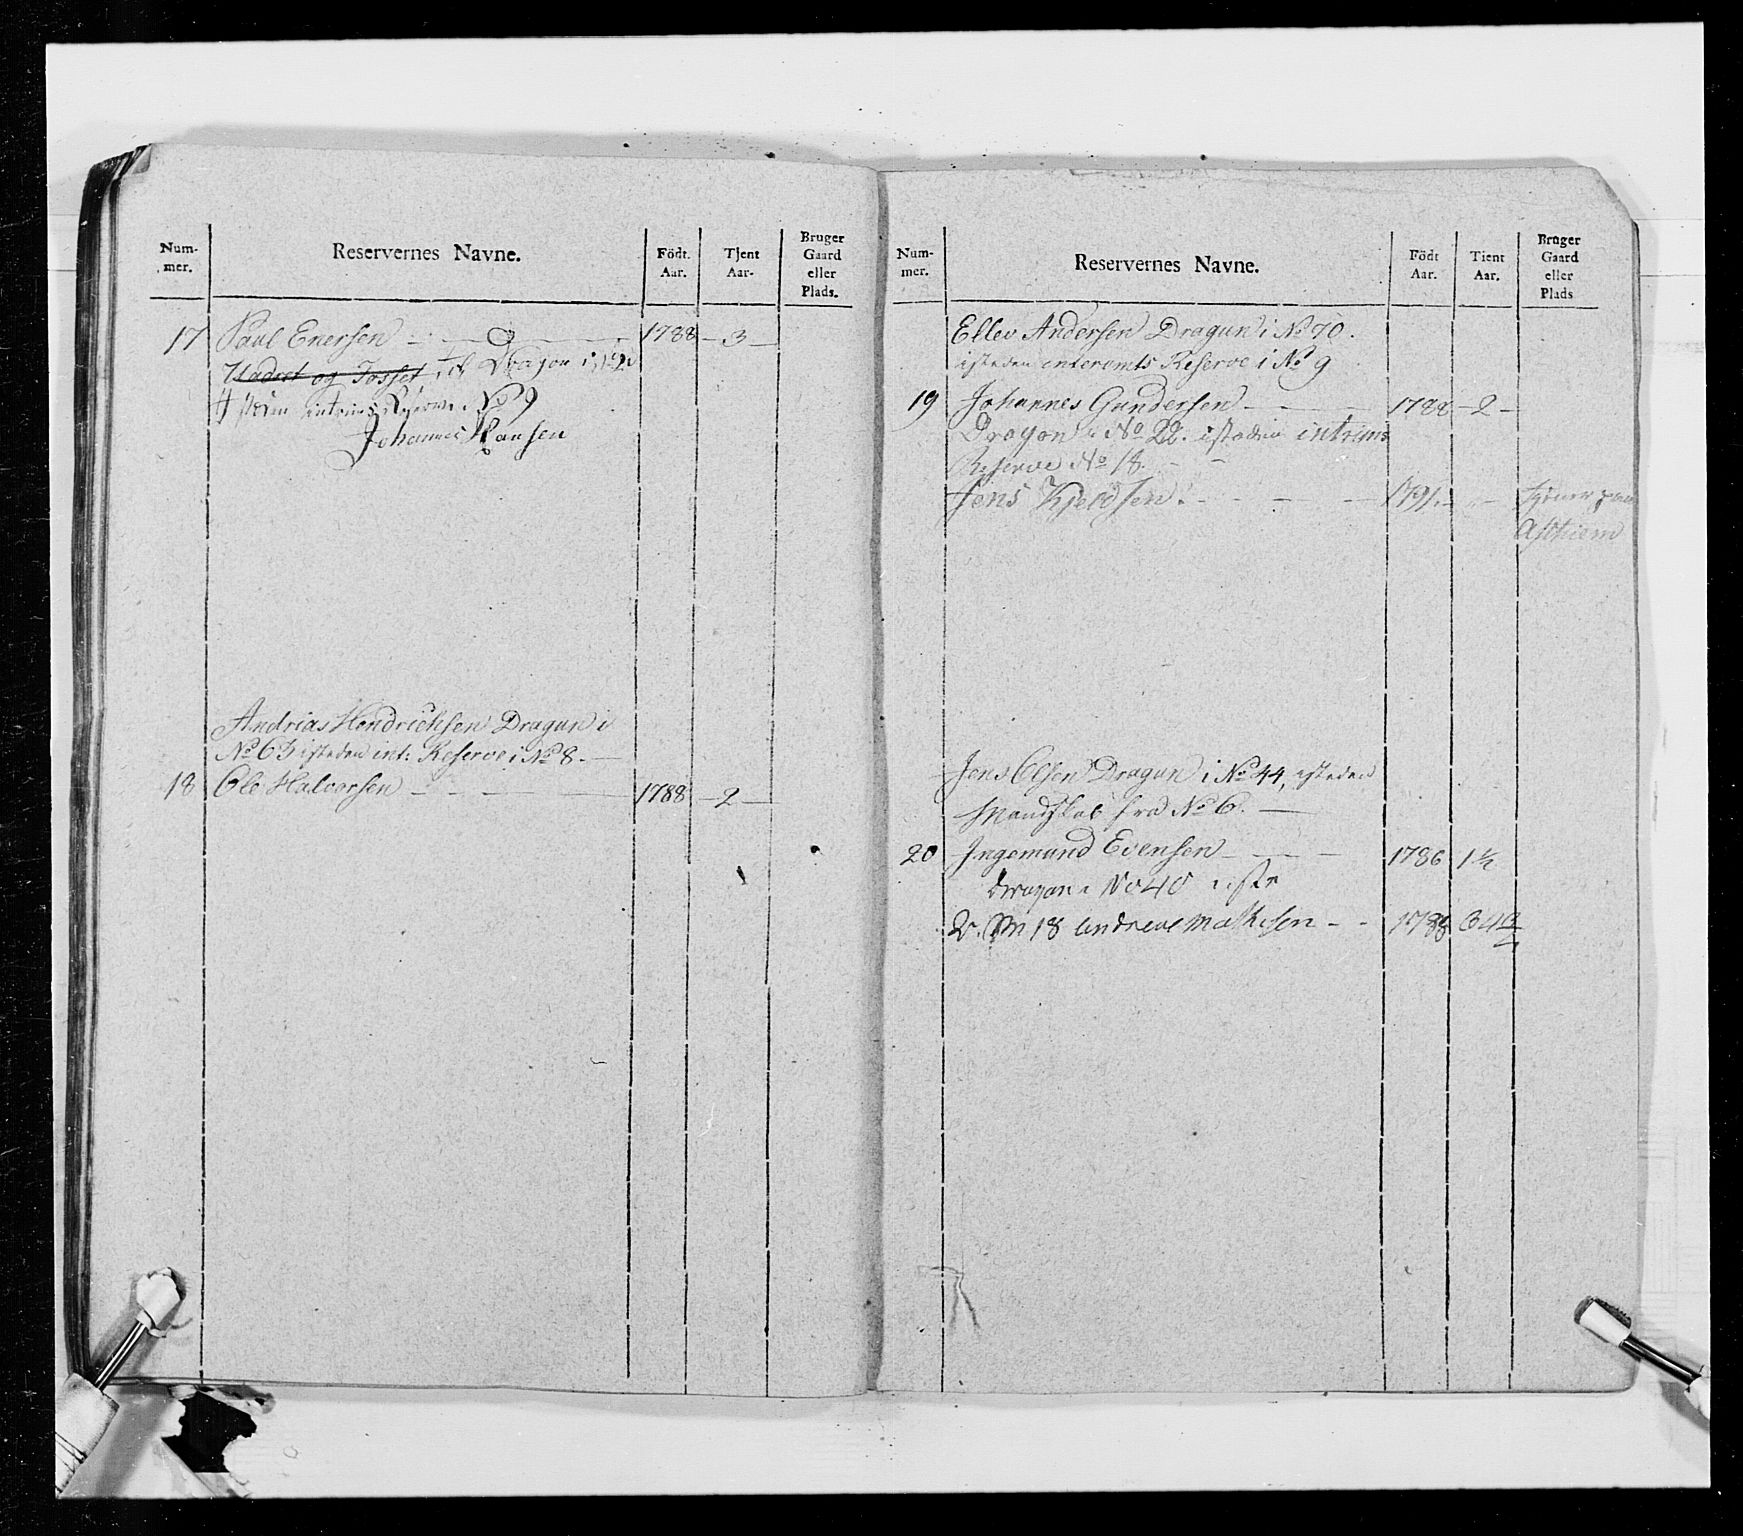 Num-
mer.
Reservernes Navne.
Födt.
Aar.
Tjent
Aar-
Bruger
Gaard
eller
Plads.
17 Paul Enersen 1788 - 3 -
Udaret og Josset til Dragon i No 2
isteden intrims Reserve No 9
Johannes Hansen
Andrias Hendrichsen Dragun i
No 63 isteden int: Reserve i No 8. -
18 Ole Halvorsen 1788 - 2 -
Num-
mer.
Reservernes Navne.
Födt
Aar.
Tient
Aar.
Bruger
Gaard
eller
Plads
Ellev Andersen Dragun i No 70.
isteden interemts Reserve i No 9
19 Johannes Gundersen 1788 - 2 -
Dragon i No 22. isteden intrims
Reserve No 18.
Jens Kjeldsen. 1791. tjener paa
Asthiem
Jens Olsen Dragun i No 44, isteden
Mandskab fra No 6. -
20 Ingemund Evensen 1786 1½
dragon i No 40 iste
18 andreas Mathisen - - 1788